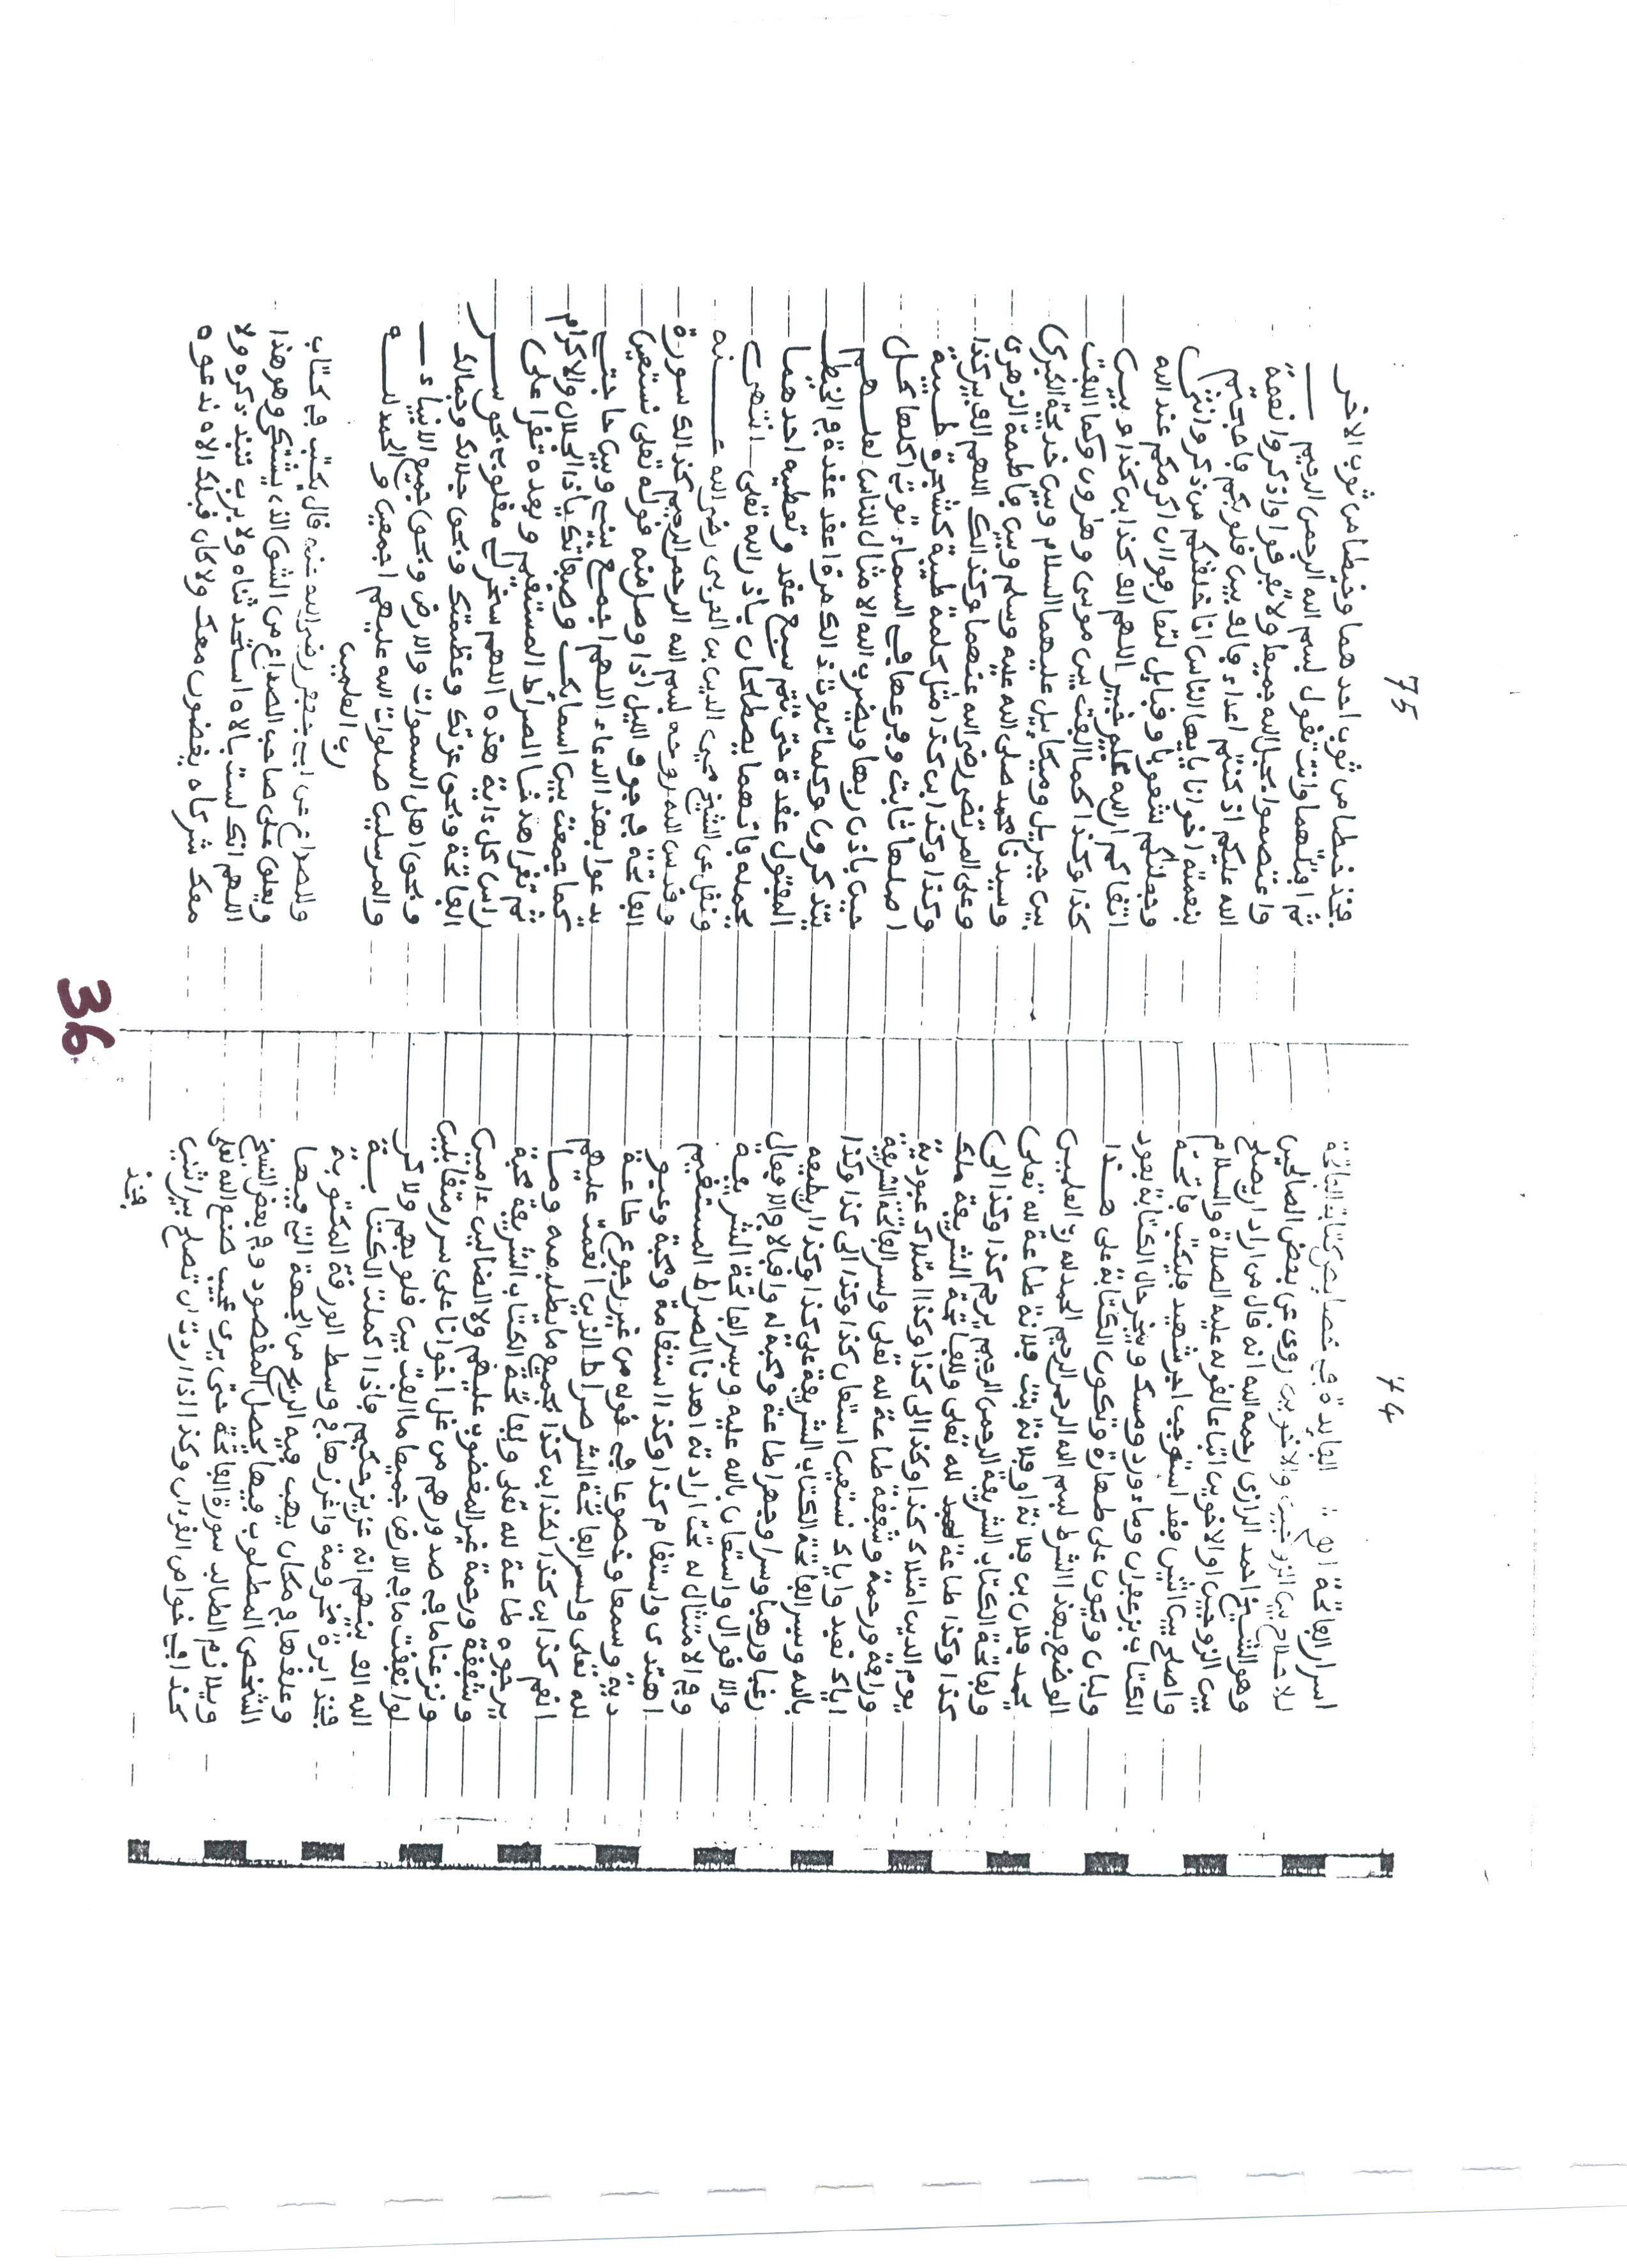 74
اسرار الفاتحة الخ :: الفايدة في خصايص كتابة الفاتحة
للاصلاح بين الزوجين والاخوين روى عن بعض الصالحين
وهو الشيخ احمد الرازى رحمه الله انه قال من اراد ان يصلح
بين الزوجين او الاخوين اتباعا لقوله عليه الصلاة والسلام
واصلح بين اثنين فقد استوجب اجر شهيد فليكتب فاتحة
الكتاب بزعفران وماء ورد ومسك ويبخر حال الكتابة بعود
ولبان ويكون على طهارة وتكون الكتابة على هذا
الوضع بهذا الشرط بسم الله الرحمن الرحيم الحمد لله رب العلمين
يحمد فلان بن فلانة او فلانة بنت فلانة طاعة لله تعلى
ولفاتحة الكتاب الشريفة الرحمن الرحيم يرحم كذا وكذا الى
كذا وكذا طاعة لله تعلى وللفاتحة الشريفة ملك
يوم الدين امتلاك كذا وكذا الى كذا وكذا امتلاك عبودية
ورافة ورحمة وشفقة طاعة لله تعلى ولسر الفاتحة الشريفة
اياك نعبد واياك نستعين استعان كذا وكذا الى كذا وكذا
بالله وبسر الفاتحة الكتاب الشريفة على كذا وكذا ان يطيعه
رغبا ورهبا وسرا وجهرا طاعة ومحبة له واقبالا والافعال
والاقوال واستعان بالله عليه وبسر الفاتحة الشريفة
وم الامتثال له تحت ارادته اهدنا الصراط المستقيم
اهتدى واستقام كذا وكذا استقامة ومحبة وعبو
دية وسمعا وخضوعا في قوله من غير رجوع طاعة
لله تعلى ولسر الفاتحة الشر صراط الذين انعمت عليهم
انعم كذا ابن كذا لكذا بن كذا بجميع ما يطلب منه وما
يرجوه طاعة لله تعلى ولفاتحة الكتاب الشريفة محبة
وشفقة ورحمة غير المغضوب عليهم ولا الضالين ءامين
ونزعنا ما في صدورهم من غل اخوانا على سرر متقابلين
لو انفقت ما في الارض جميعا ما الفت بين قلوبهم ولاكن
الله الف بينهم انه عزيز حكيم فاذا اكملت الكتابة
فخذ ابرة مخزومة واغرزها في وسط الورقة المكتوبة
وعلقها في مكان يهب فيه الريح من الجهة التي فيها
الشخص المطلوب فيها يحصل المقصود وم بعض النسخ
ويلازم الطالب سورة الفاتحة حتى يرى عجيب صنع الله تعلى
كذا في خواص القران وكذا اذا اردت ان تصلح بين اثنين
فخذ
75
فخذ خيطا من ثوب احدهما وخيطا من ثوب الاخر
ثم افتلهما وانت تقول بسم الله الرحمن الرحيم
واعتصموا بحبل الله جميعا ولا تفرقوا واذكروا نعمة
الله عليكم اذ كنتم اعداء فالف بين قلوبكم فاصبحتم
بنعمته اخوانا يايها الناس انا خلقنكم من ذكر وانثى
وجعلنكم شعوبا وقبايل لتعارفوا ان اكرمكم عند الله
اتقاكم ان الله عليم خبير اللهم الف بين كذا ابن كذا وبين
كذا وكذا كما الفت بين موسى وهرون وكما الفت
بين جبريل وميكايل عليهما السلام وبين خديجة الكبرى
وسيدنا محمد صلى الله عليه وسلم وبين فاطمة الزهرى
وعلى المرتضى رضى الله عنهما وكذالك اللهم الف بين كذا
وكذا وكذا ابن كذا مثل كلمة طيبة كشجرة طيبة
اصلها ثابت وفرعها في السماء توتي اكلها كل
حين باذن ربها ويضرب الله الامثال للناس لعلهم
يتذكرون وكلما تلوت ذالك مرة اعقد عقدة في الخيط
المفتول عقدة حتى تتم سبع عقد وتعطيه احدهما
يحمله فانهما يصطلحان باذن الله تعلى انتهى
ونقل عن الشيخ محيى الدين بن العربى رضى الله عنه
وقدس الله روحه بسم الله الرحمن الرحيم كذالك سورة
الفاتحة في جوف الليل اذا وصل منه قوله تعلى نستعين
يدعوا بهذا الدعاء اللهم اجمع بيني وبين حاجتي
كما جمعت بين اسمايك وصفاتك ياذا الجلال والاكرام
ثم تقرا اهدنا الصراط المستقيم وبعده تقرا على
راس كل ءاية هذه اللهم سخر لي مقلوب بحق سر
الفاتحة وبحق عزتك وعظمتك وبحق جلالك وجمالك
وبحق اهل السموات والارض وبحق جميع الانبياء
والمرسلين صلوات الله عليهم اجمعين والحمد لله
رب العلمين
وللصداع عن ابي جعفر رضى الله عنه قال يكتب في كتاب
ويعلق على صاحب الصداع من الشق الذى يشتكى وهو هذا
اللهم انك لست بالاه استحدثناه ولا برب تبيد ذكره ولا
معك شركاء يقضون معك ولا كان قبلك الاه ندعوه
36